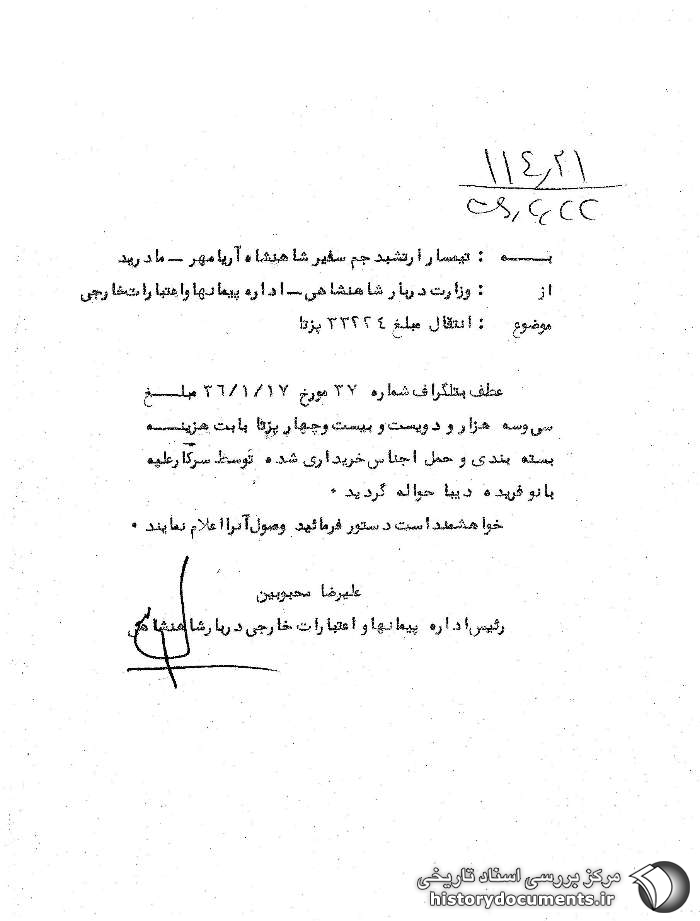 ۱۱۴٫۲۱
به : تیمسار ارتشبد جم سفیر شاهنشاه آریامهر – مادرید
از : وزارت دربار شاهنشاهی – اداره پیمانها و اعتبارات خارجی
موضوع : انتقال مبلغ ۳۳۲۲۴ پزتا
عطف بتلگراف شماره ۳۷ مورخ ۳۶/۱/۱۷ مبلغ
سی وسه هزار و دویست و بیست و چهار پزتا بابت هزینه
بسته بندی و حمل اجناس خریداری شده توسط سرکار علیه
بانو فریده دیبا حواله گردید .
خواهشمند است دستور فرمائید وصول آنرا اعلام نمایند .
علیرضا محبوبین
رئیس اداره پیمانها و اعتبارات خارجی دربار شاهنشاهی
مرکز بررسی اسناد تاریخی
historydocuments.ir